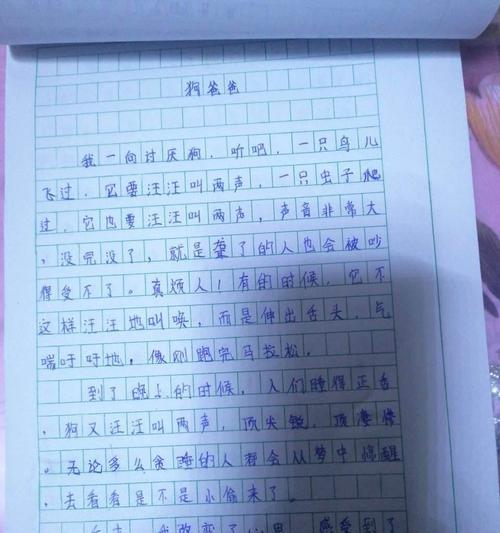 狗爸爸
我一向讨厌狗，听吧，一只鸟儿
飞过，它要汪汪叫两声，一只虫子爬
过，它也要汪汪叫两声，声音非常大
，没完没了，就是聋了的人也会被吵
得受不了。真烦人！有的时候，它不
这样汪汪地叫唤，而是伸出舌头，气
喘吁吁地，像刚跑完马拉松。
到了晚上的时候，人们睡得正香
，狗又汪汪叫两声，顶尖锐，顶凄惨
。无论多么贪睡的人都会从梦中惊醒
，去看看是不是小偷来了。
后来，我改变了心思，感受到了